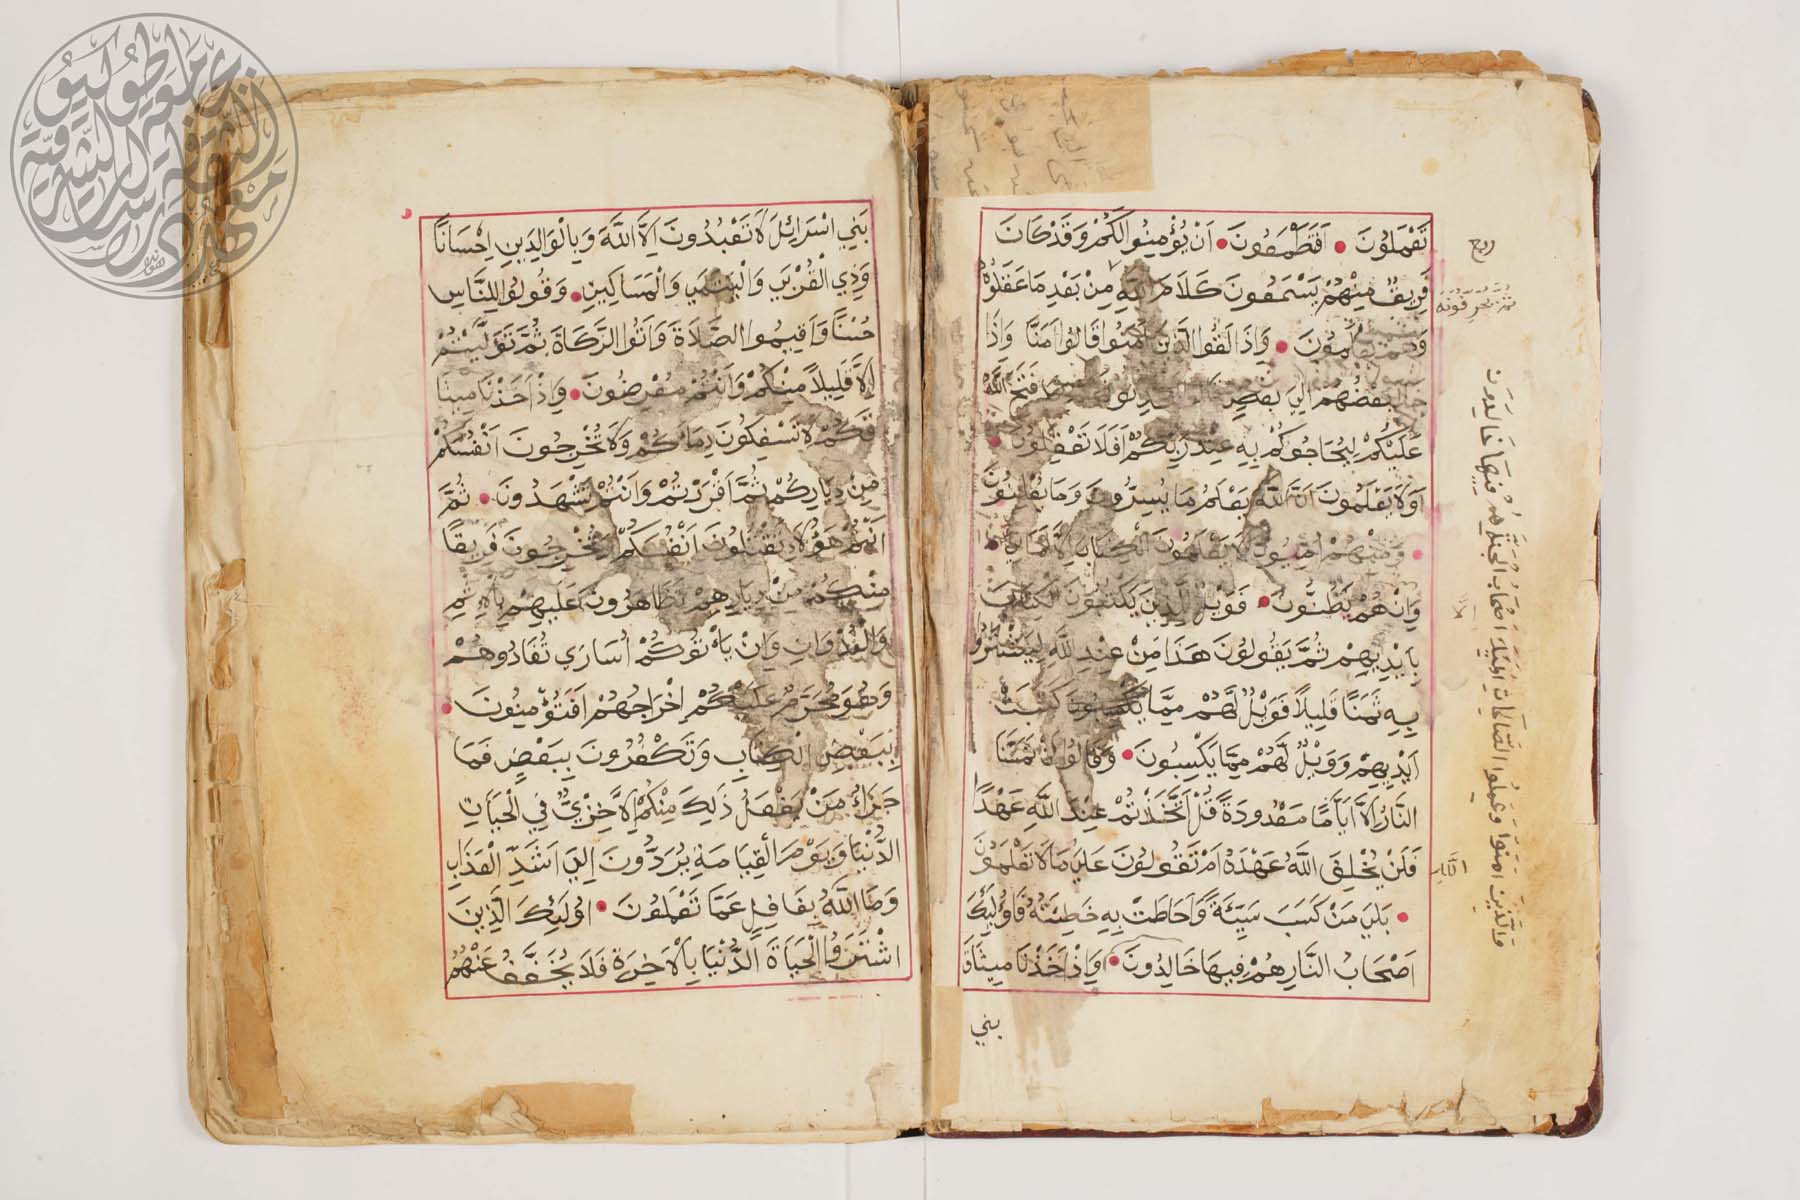 تَعْمَلُونَ • اَفَتَطْمَعُونَ • اَنْ يُؤْمِنُوا لَكُمْ وَقَدْ كَانَ
فَرِيقٌ مِنْهُمْ يَسْمَعُونَ كَلَامَ اللَّهِ مِنْ بَعْدِ مَا عَقَلُوهُ
وَهُمْ يَعْلَمُونَ • وَاِذَا لَقُوا الَّذِينَ اٰمَنُوا قَالُوا اٰمَنَّا وَاِذَا
خَلَا بَعْضُهُمْ اِلَى بَعْضٍ فَتَحَ اللَّهُ
عَلَيْكُمْ لِيُحَاجُّوكُمْ بِهِ عِنْدَ رَبِّكُمْ اَفَلَا تَعْقِلُونَ •
اَوَلَا يَعْلَمُونَ اَنَّ اللَّهَ يَعْلَمُ مَا يُسِرُّونَ وَمَا يُعْلِنُونَ
• وَمِنْهُمْ اُمِّيُّونَ لَا يَعْلَمُونَ الْكِتَابَ اِلَّا اَمَانِيَّ
وَاِنْ هُمْ يَظُنُّونَ • فَوَيْلٌ لِلَّذِينَ يَكْتُبُونَ الْكِتَابَ
بِاَيْدِيهِمْ ثُمَّ يَقُولُونَ هَذَا مِنْ عِنْدِ اللَّهِ لِيَشْتَرُوا
بِهِ ثَمَنًا قَلِيلاً فَوَيْلٌ لَّهُمْ مِمَّا كَتَبَتْ
اَيْدِيهِمْ وَوَيْلٌ لَّهُمْ مِمَّا يَكْسِبُونَ • وَقَالُوا لَنْ تَمَسَّنَا
النَّارُ اِلَّا اَيَّامًا مَعْدُودَةً قُلْ اَتَّخَذْتُمْ عِنْدَ اللَّهِ عَهْدًا
فَلَنْ يُخْلِفَ اللَّهُ عَهْدَهُ اَمْ تَقُولُونَ عَلَى مَا لَا تَعْلَمُونَ
• بَلَى مَنْ كَسَبَ سَيِّئَةً وَّاَحَاطَتْ بِهِ خَطِيئَتُهُ فَاُولَئِكَ
اَصْحَابُ النَّارِ هُمْ فِيهَا خَالِدُونَ • وَاِذْ اَخَذْنَا مِيثَاقَ
بني
ثُمَّ يُحَرِّفُونَهُ
وَالَّذِينَ اٰمَنُوا وَعَمِلُوا الصَّالِحَاتِ اُولَئِكَ اَصْحَابُ الْجَنَّةِ هُمْ فِيهَا خَالِدُونَ
اللَّهِ
بَنِي اِسْرَائِلَ لَا تَعْبُدُونَ اِلَّا اللَّهَ وَبِالْوَالِدَيْنِ اِحْسَانًا
وَذِي الْقُرْبَى وَالْيَتَمَى وَالْمَسَاكِينِ • وَقُولُوا لِلنَّاسِ
حُسْنًا وَاَقِيمُوا الصَّلَاةَ وَاٰتُوا الزَّكَاةَ ثُمَّ تَوَلَّيْتُمْ
اِلَّا قَلِيلاً مِنْكُمْ وَاَنْتُمْ مُعْرِضُونَ • وَاِذْ اَخَذْنَا مِيثَا
قَكُمْ لَا تَسْفِكُونَ دِمَاءَكُمْ وَلَا تُخْرِجُونَ اَنْفُسَكُمْ
مِنْ دِيَارِكُمْ ثُمَّ اَقْرَرْتُمْ وَاَنْتُمْ تَشْهَدُونَ • ثُمَّ
اَنْتُمْ هَؤُلَاءِ تَقْتُلُونَ اَنْفُسَكُمْ وَتُخْرِجُونَ فَرِيقًا
مِنْكُمْ مِنْ دِيَارِهِمْ تَظَاهَرُونَ عَلَيْهِمْ بِالْاِثْمِ
وَالْعُدْوَانِ وَاِنْ يَأْتُوكُمْ اُسَارَى تُفَادُوهُمْ
وَهُوَ مُحَرَّمٌ عَلَيْكُمْ اِخْرَاجُهُمْ اَفَتُؤْمِنُونَ •
بِبَعْضِ الْكِتَابِ وَتَكْفُرُونَ بِبَعْضٍ فَمَا
جَزَاءُ مَنْ يَفْعَلُ ذَلِكَ مِنْكُمْ اِلَّا خِزْيٌ فِي الْحَيَاتِ
الدُّنْيَا وَيَوْمَ الْقِيَامَةِ يُرَدُّونَ اِلَى اَشَدِّ الْعَذَابِ
وَمَا اللَّهُ بِغَافِلٍ عَمَّا تَعْمَلُونَ • اُولَئِكَ الَّذِينَ
اشْتَرَوُا الْحَيَاةَ الدُّنْيَا بِالْاَخِرَةِ فَلَا يُخَفَّفُ عَنْهُمُ